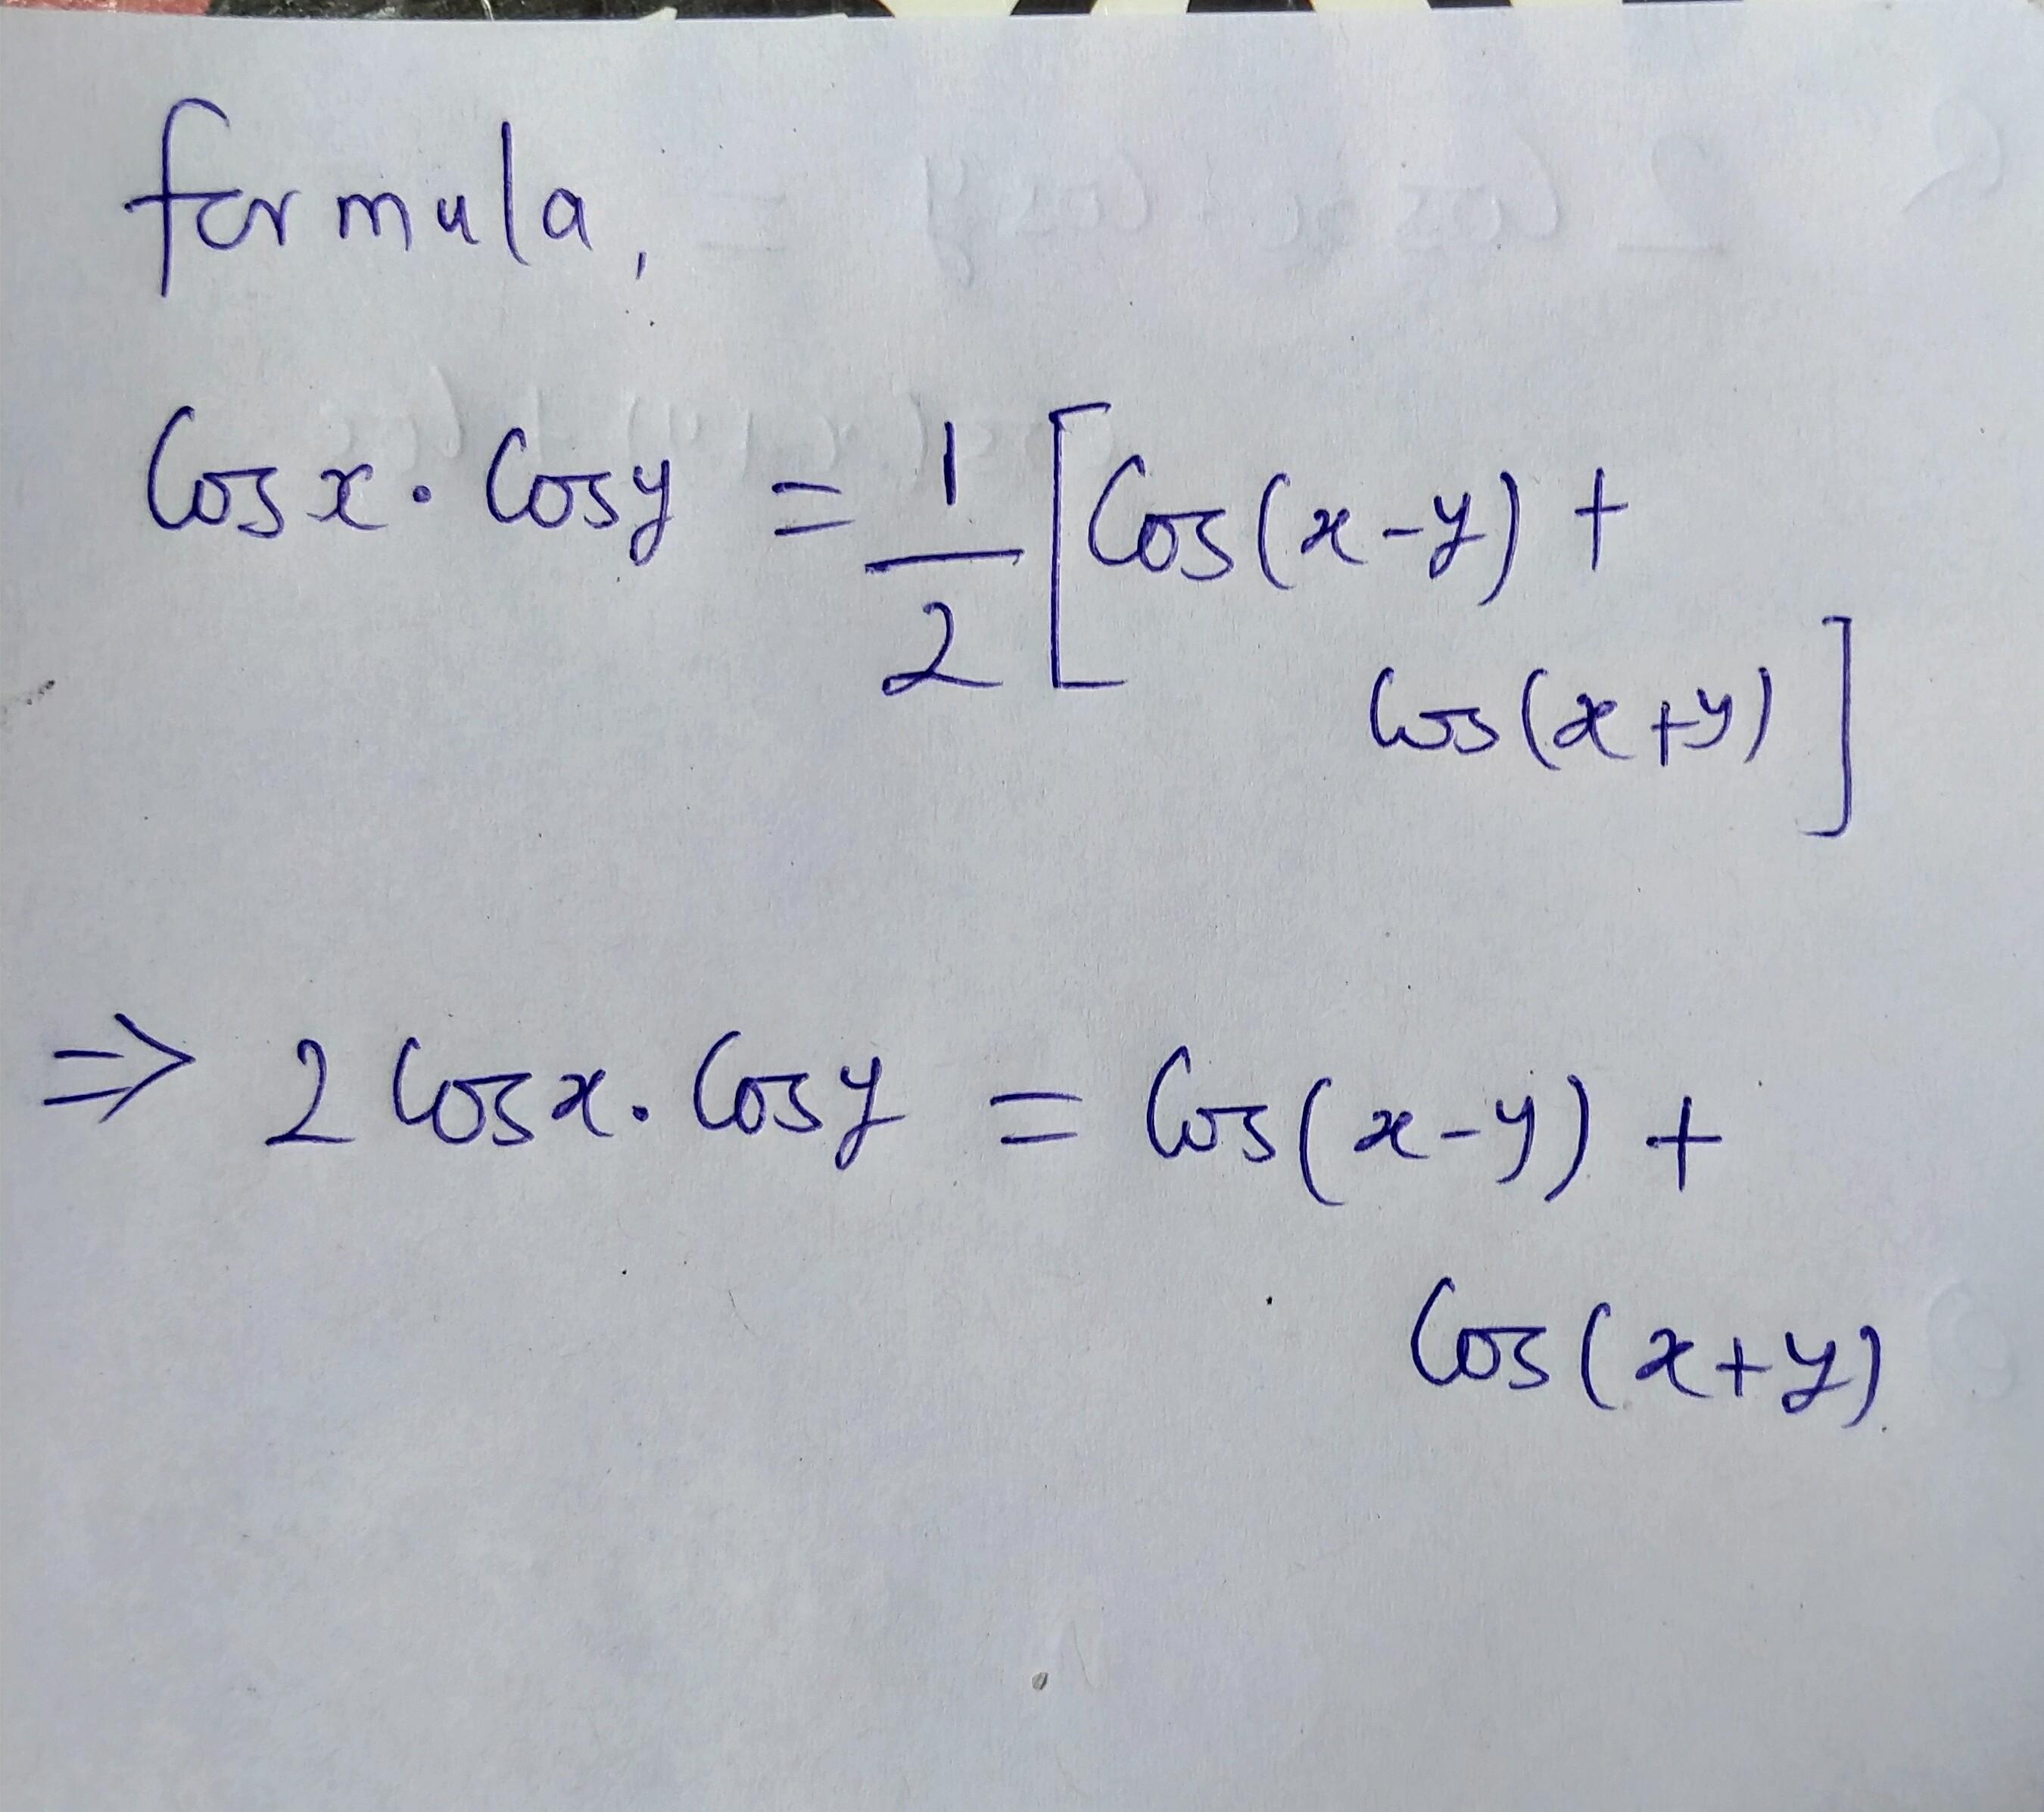 formula,
Cosx . Cosy = 1/2 [Cos(x-y) +
Cos(x+y)]
⇒ 2 Cosx. Cosy = Cos(x-y) +
Cos(x+y)